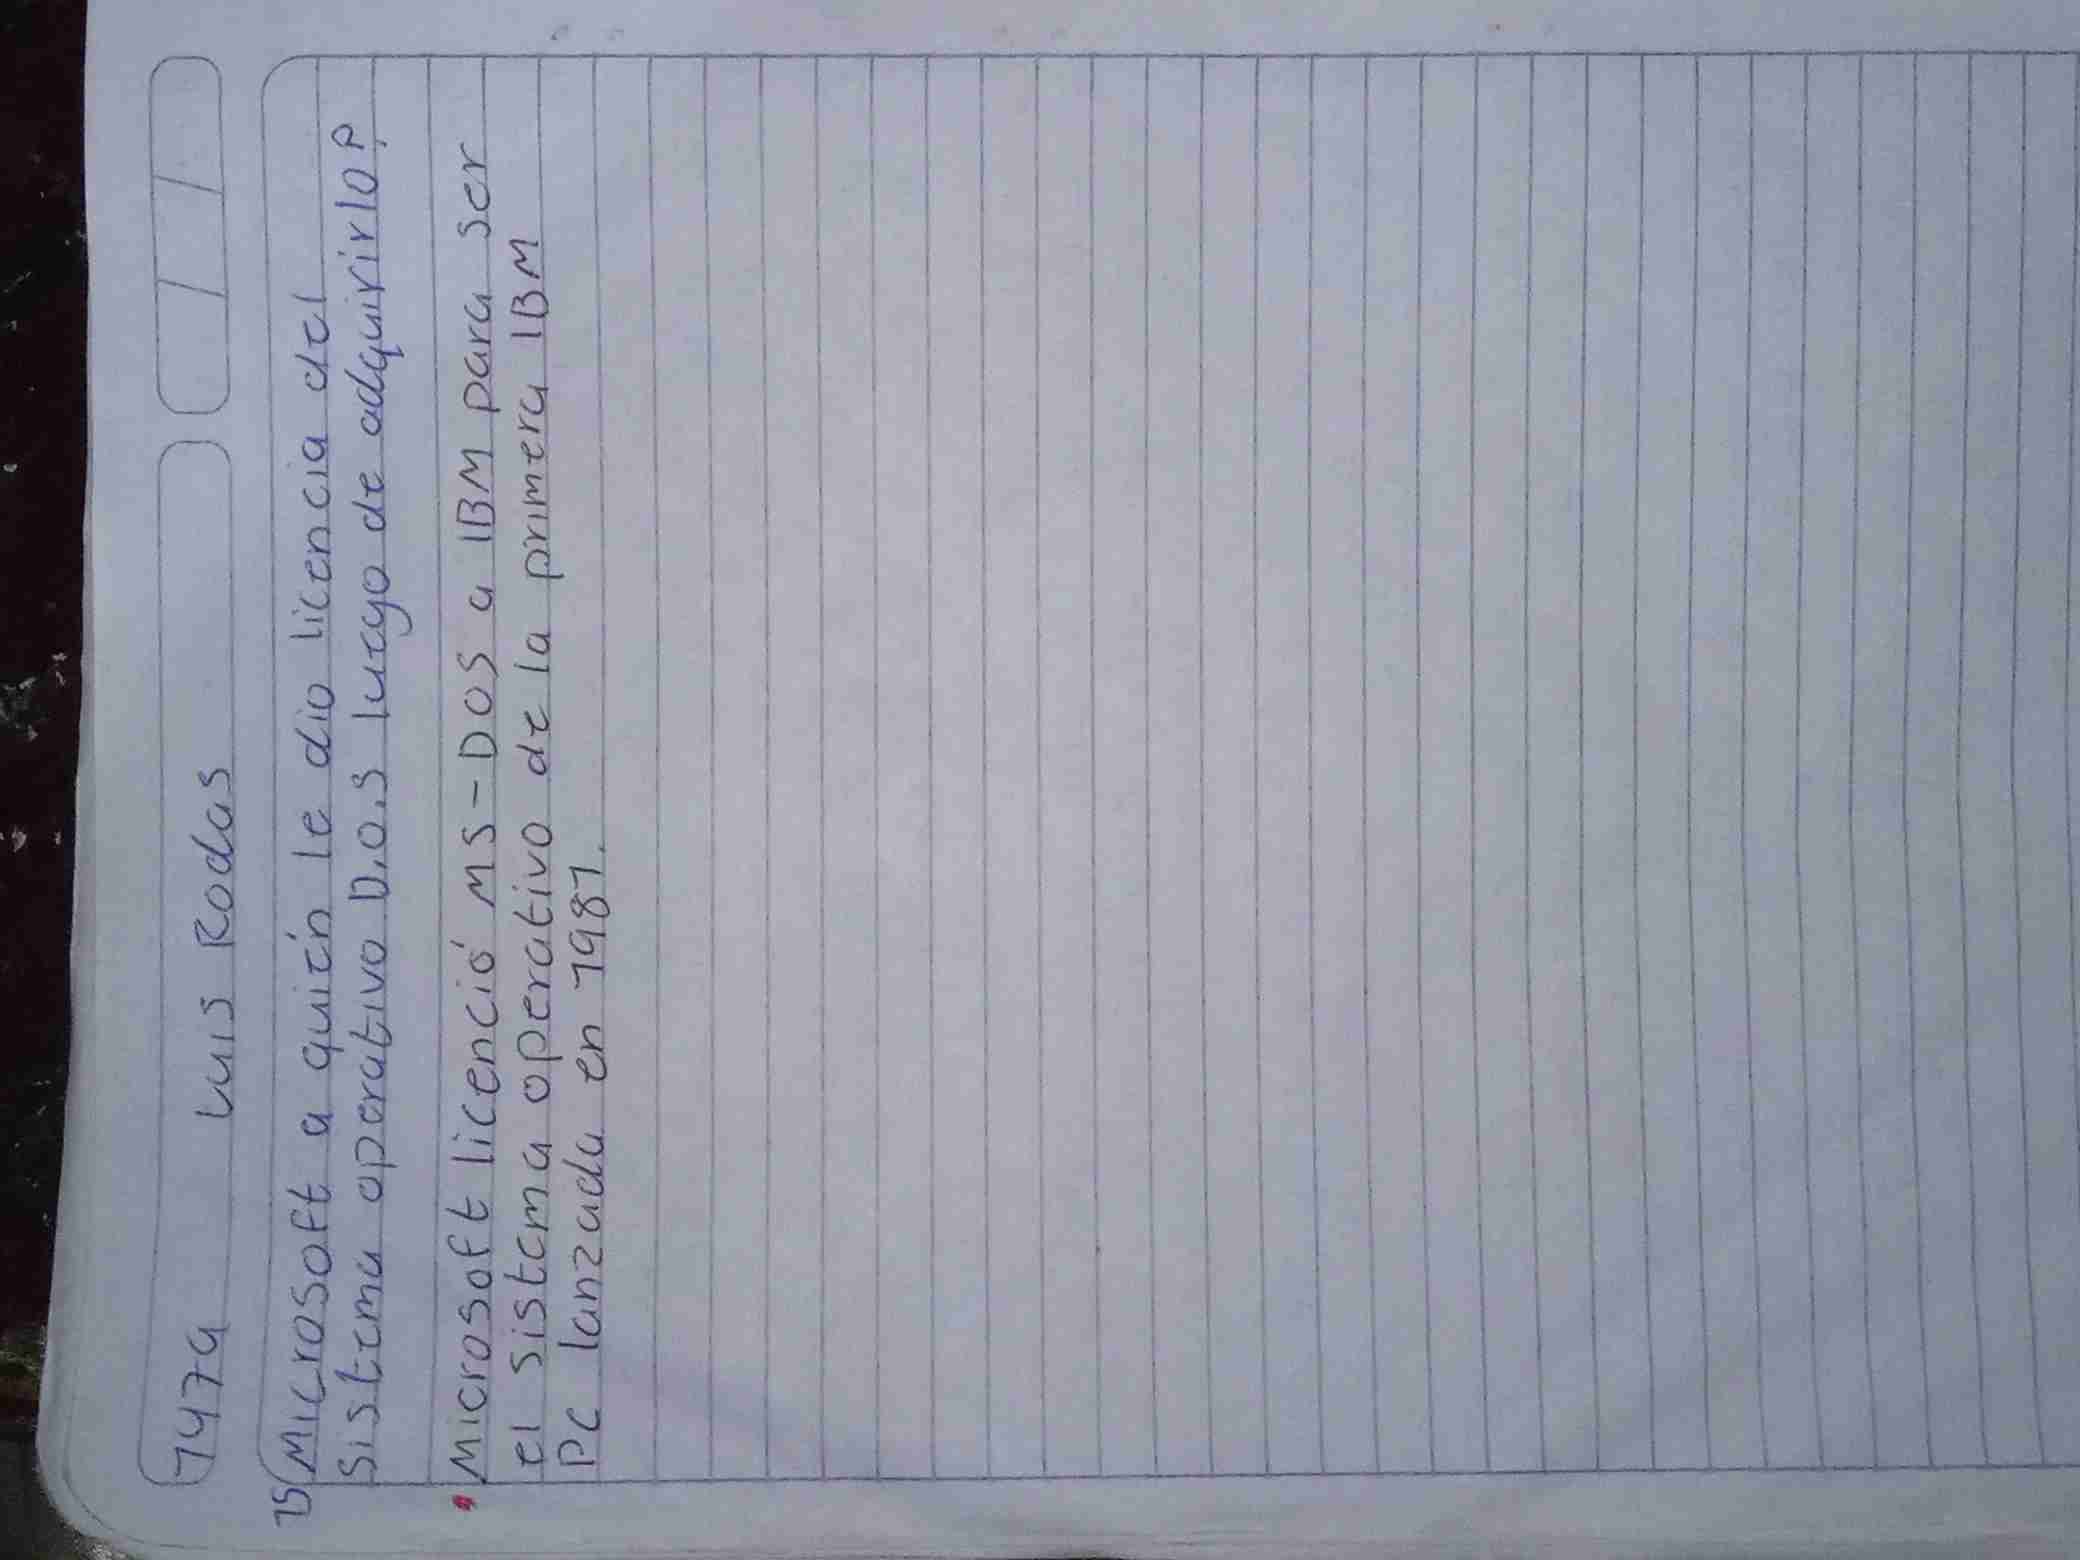 1479 Luis Rodas
15 Microsoft a quién le dio licencia del
Sistema operativo D.O.S luego de adquirirlo?
Microsoft licenció MS-DOS a IBM para ser
el sistema operativo de la primera IBM
PC lanzada en 1981.